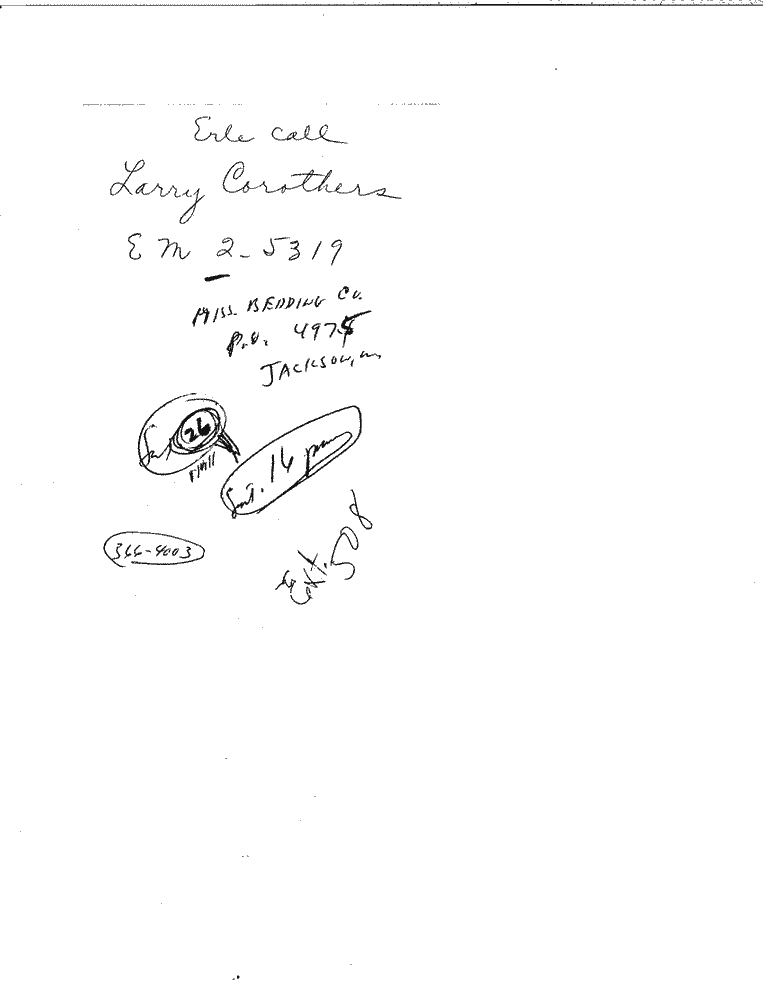 Erle call
Larry Corothers
EM 2-5319
MISS. BEDDING CO.
P.O. 4975
JACKSON,
26
16 pm
366-4003
Ext. 508